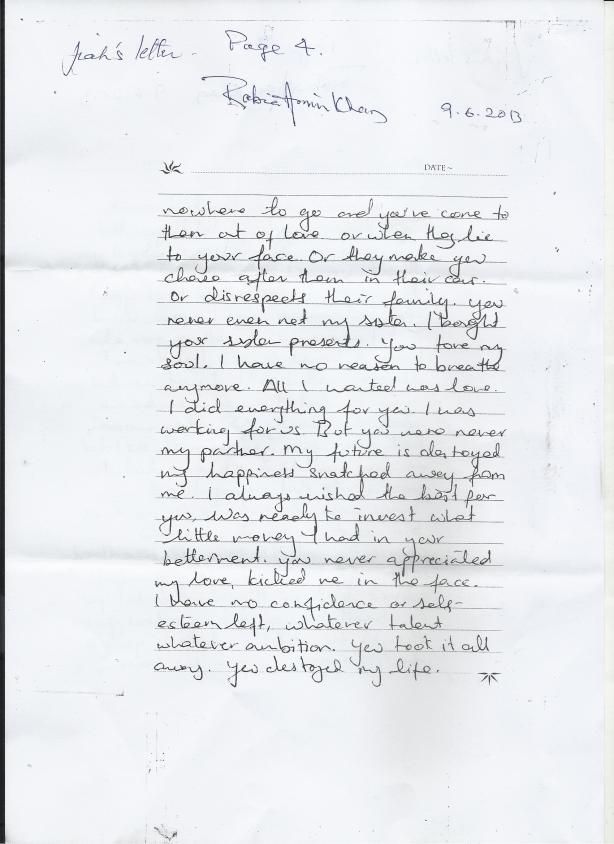 Jiah's letter - Page 4.
Rabia Amin Khan
9.6.2013
DATE ~
nowhere to go and you've come to
them out of love or when they lie
to your face. Or they make you
chase after them in their car.
Or disrespects their family. you
never even met my sister. I bought
your sister presents. You tore my
soul. I have no reason to breathe
anymore. All I wanted was love.
I did everything for you. I was
working for us. But you were never
my partner. My future is destroyed
my happiness snatched away from
me. I always wished the best for
you, was ready to invest what
little money I had in your
betterment. you never appreciated
my love, kicked me in the face.
I have no confidence or self-
esteem left, whatever talent
whatever ambition. You took it all
away. You destroyed my life.